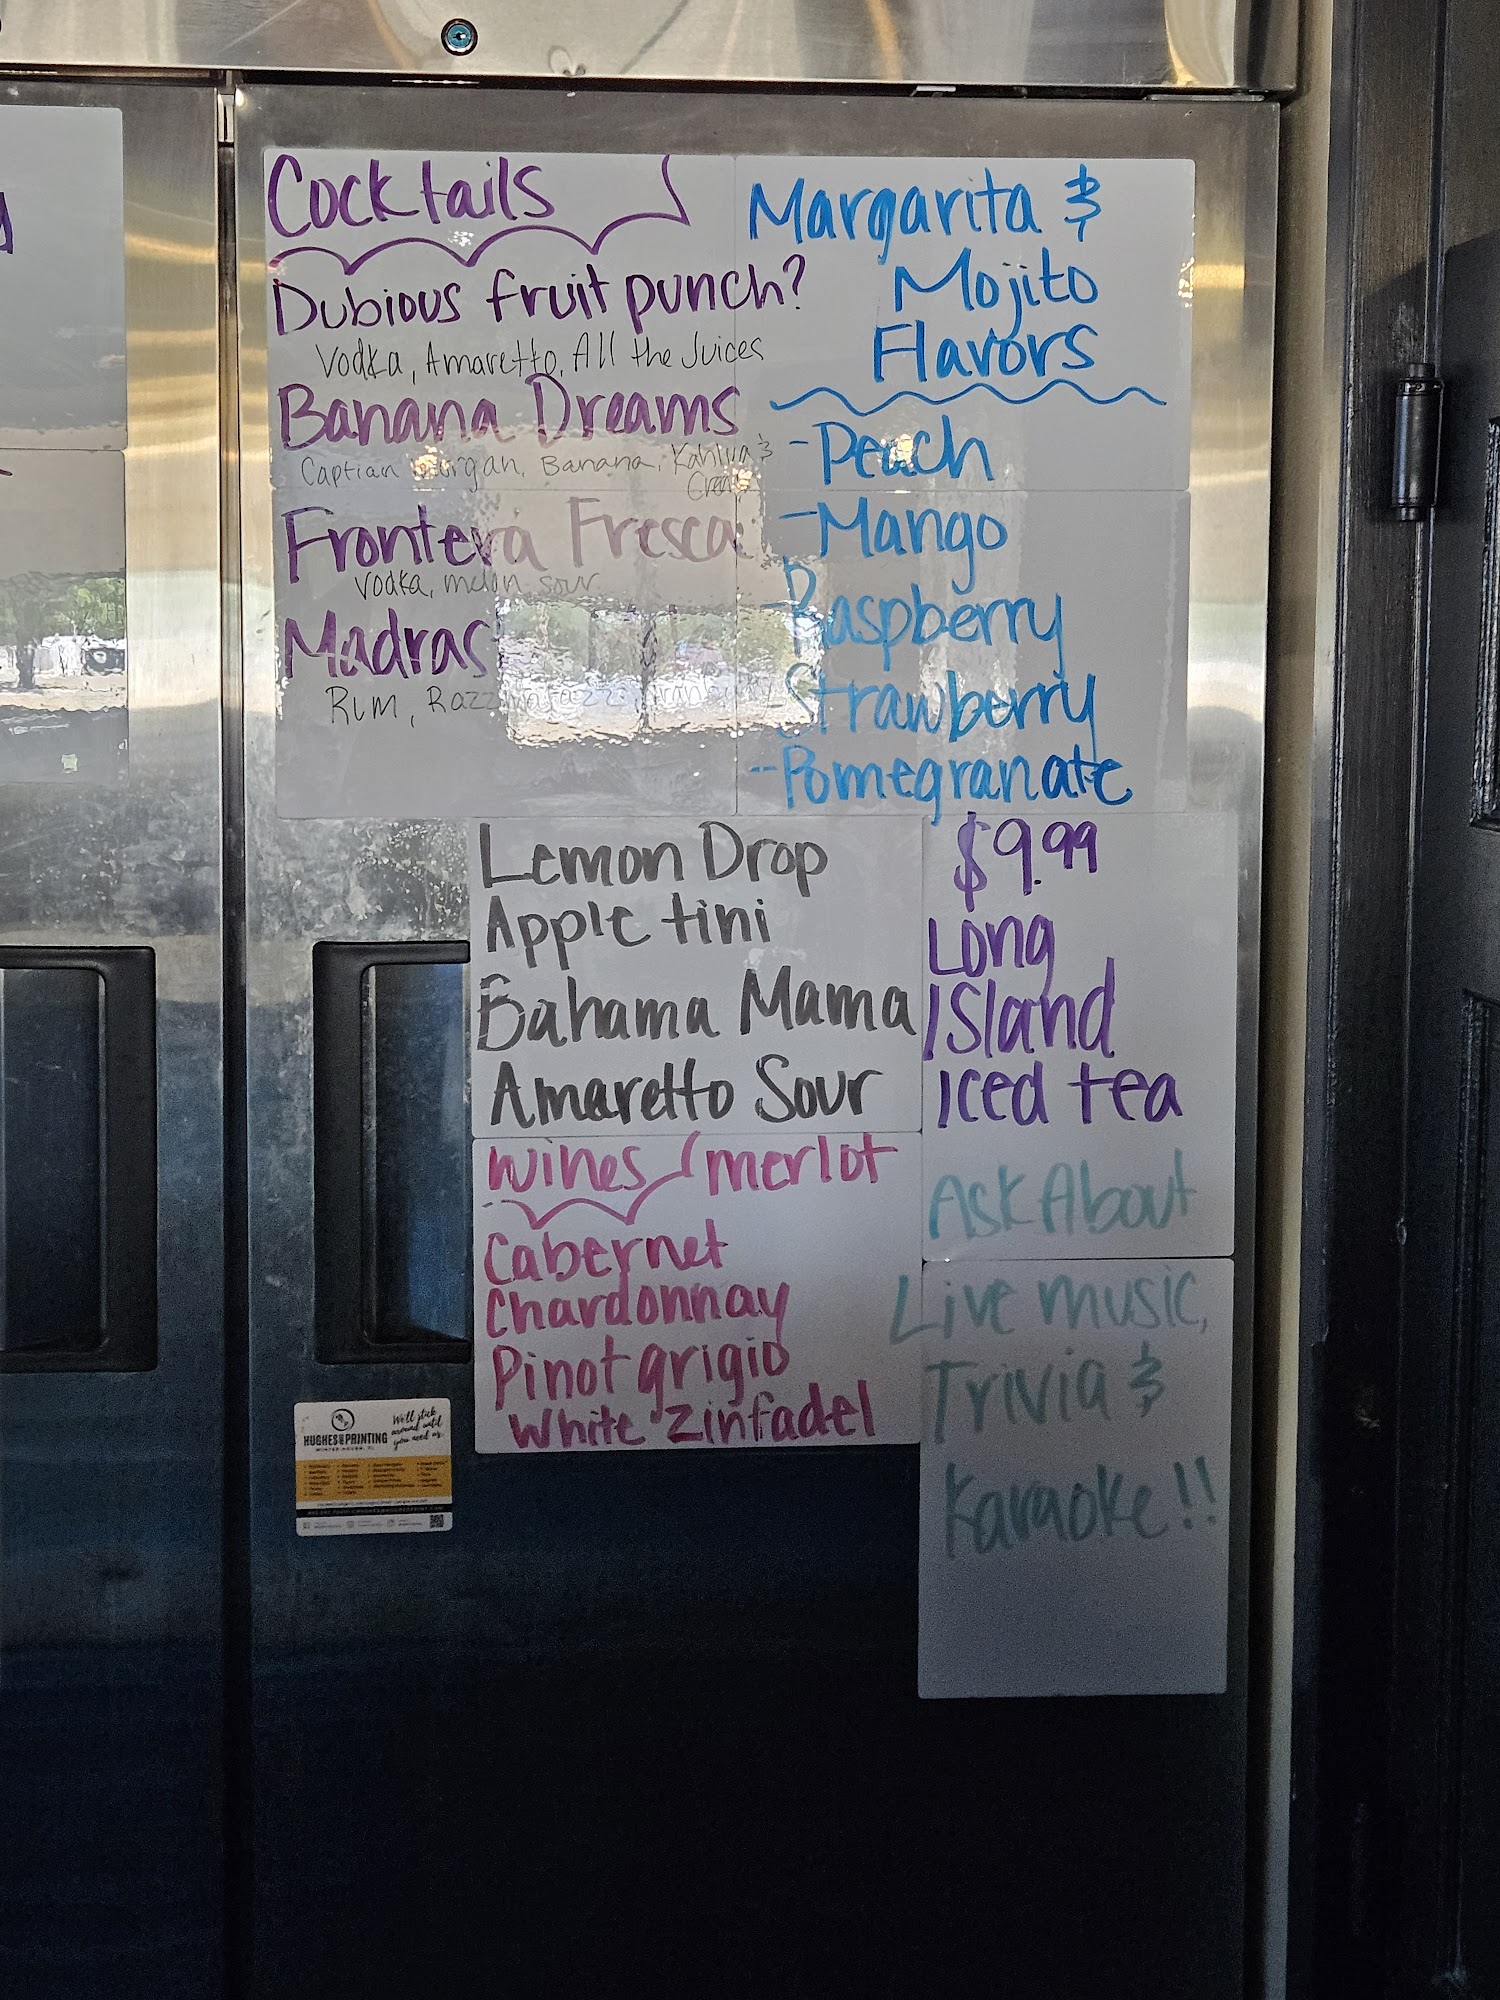 Cocktails
Dubious fruit punch?
Vodka, Amaretto, All the Juices
Banana Dreams
Captian Morgan, Banana, Kahlua &
Cream
Frontera Fresca
Vodka, melon sour
Madras
Rum, Razzmatazz, Cranberry
Margarita &
Mojito
Flavors
-Peach
-Mango
-Raspberry
-Strawberry
-Pomegranate
Lemon Drop
Apple tini
Bahama Mama
Amaretto Sour
$9.99
Long
Island
Iced tea
Wines
merlot
Cabernet
Chardonnay
Pinot grigio
White Zinfadel
Ask About
Live music,
Trivia &
Karaoke!!
HUGHES PRINTING
We'll stick
around until
you need us.